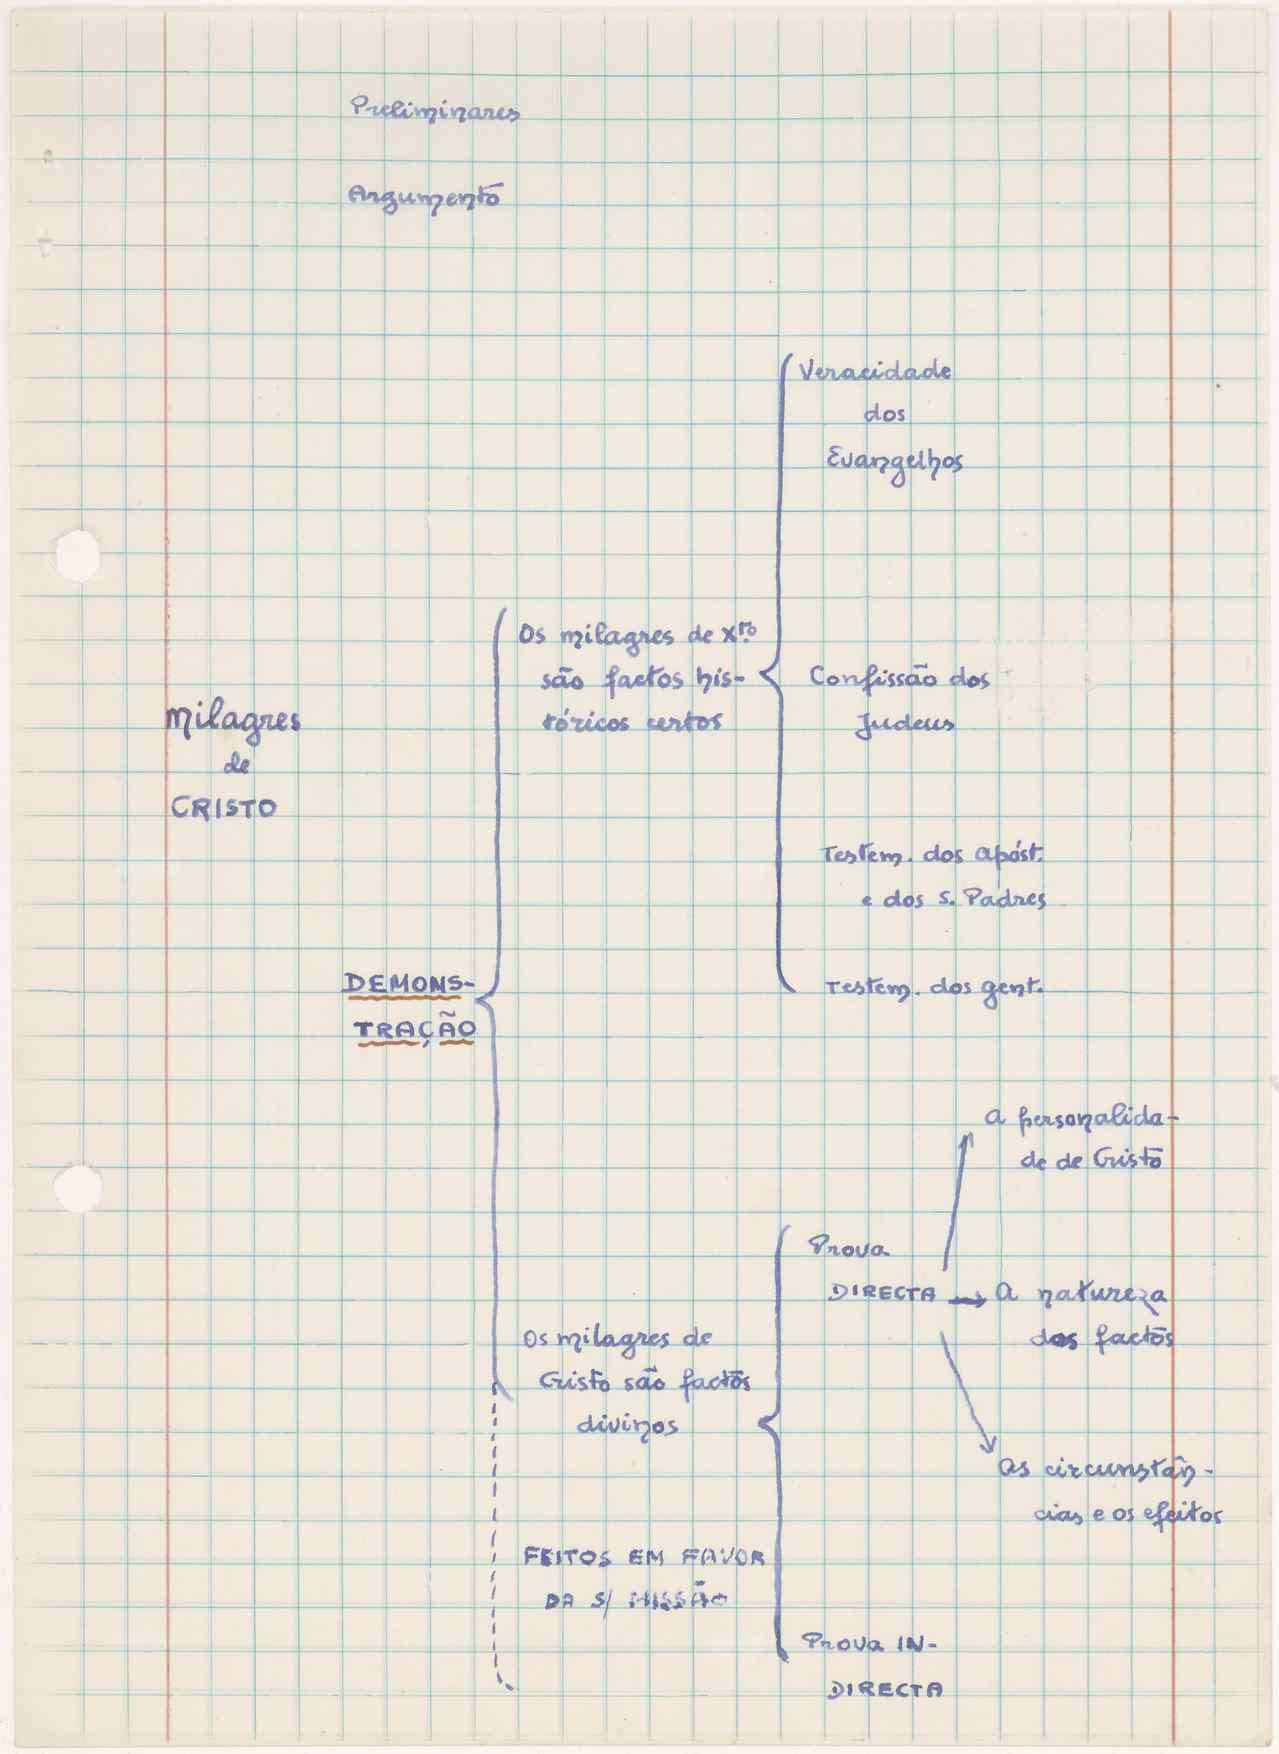 Preliminares
Argumento
Milagres
de
CRISTO
DEMONS-
TRAÇÃO
Os milagres de Xto.
são factos his-
tóricos certos
Veracidade
dos
Evangelhos
Confissão dos
Judeus
Testem. dos apóst.
e dos S. Padres
Testem. dos gent.
Os milagres de
Cristo são factos
divinos
Prova
DIRECTA
a personalida-
de de Cristo
a natureza
dos factos
as circunstân-
cias e os efeitos
Prova IN-
DIRECTA
FEITOS EM FAVOR
DA S/ MISSÃO